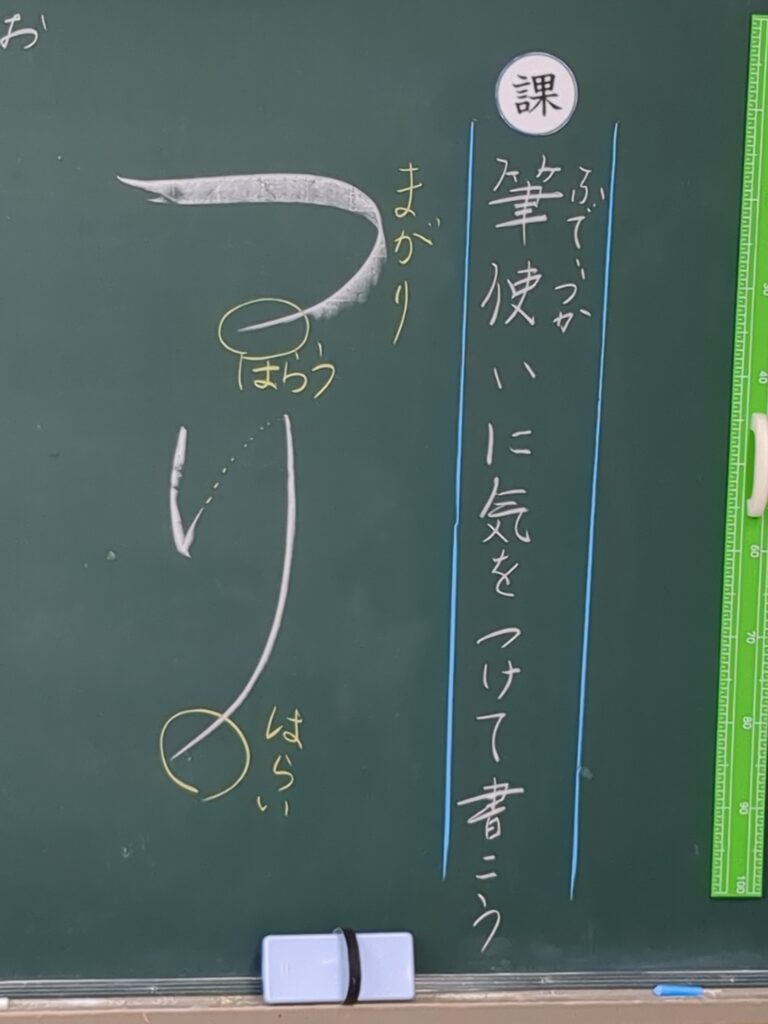 課
筆使いに気をつけて書こう
ふでづか
まがり
つり
はらう
はらい
お
30
40
60
70
80
90
100